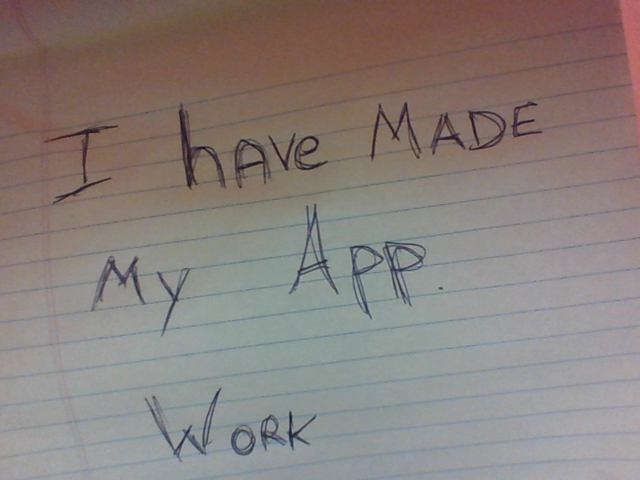 I hAVe MADE
My App.
WORK